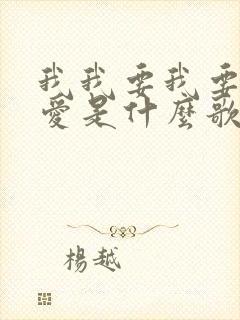 我我要我要
愛是什麼歌
楊越